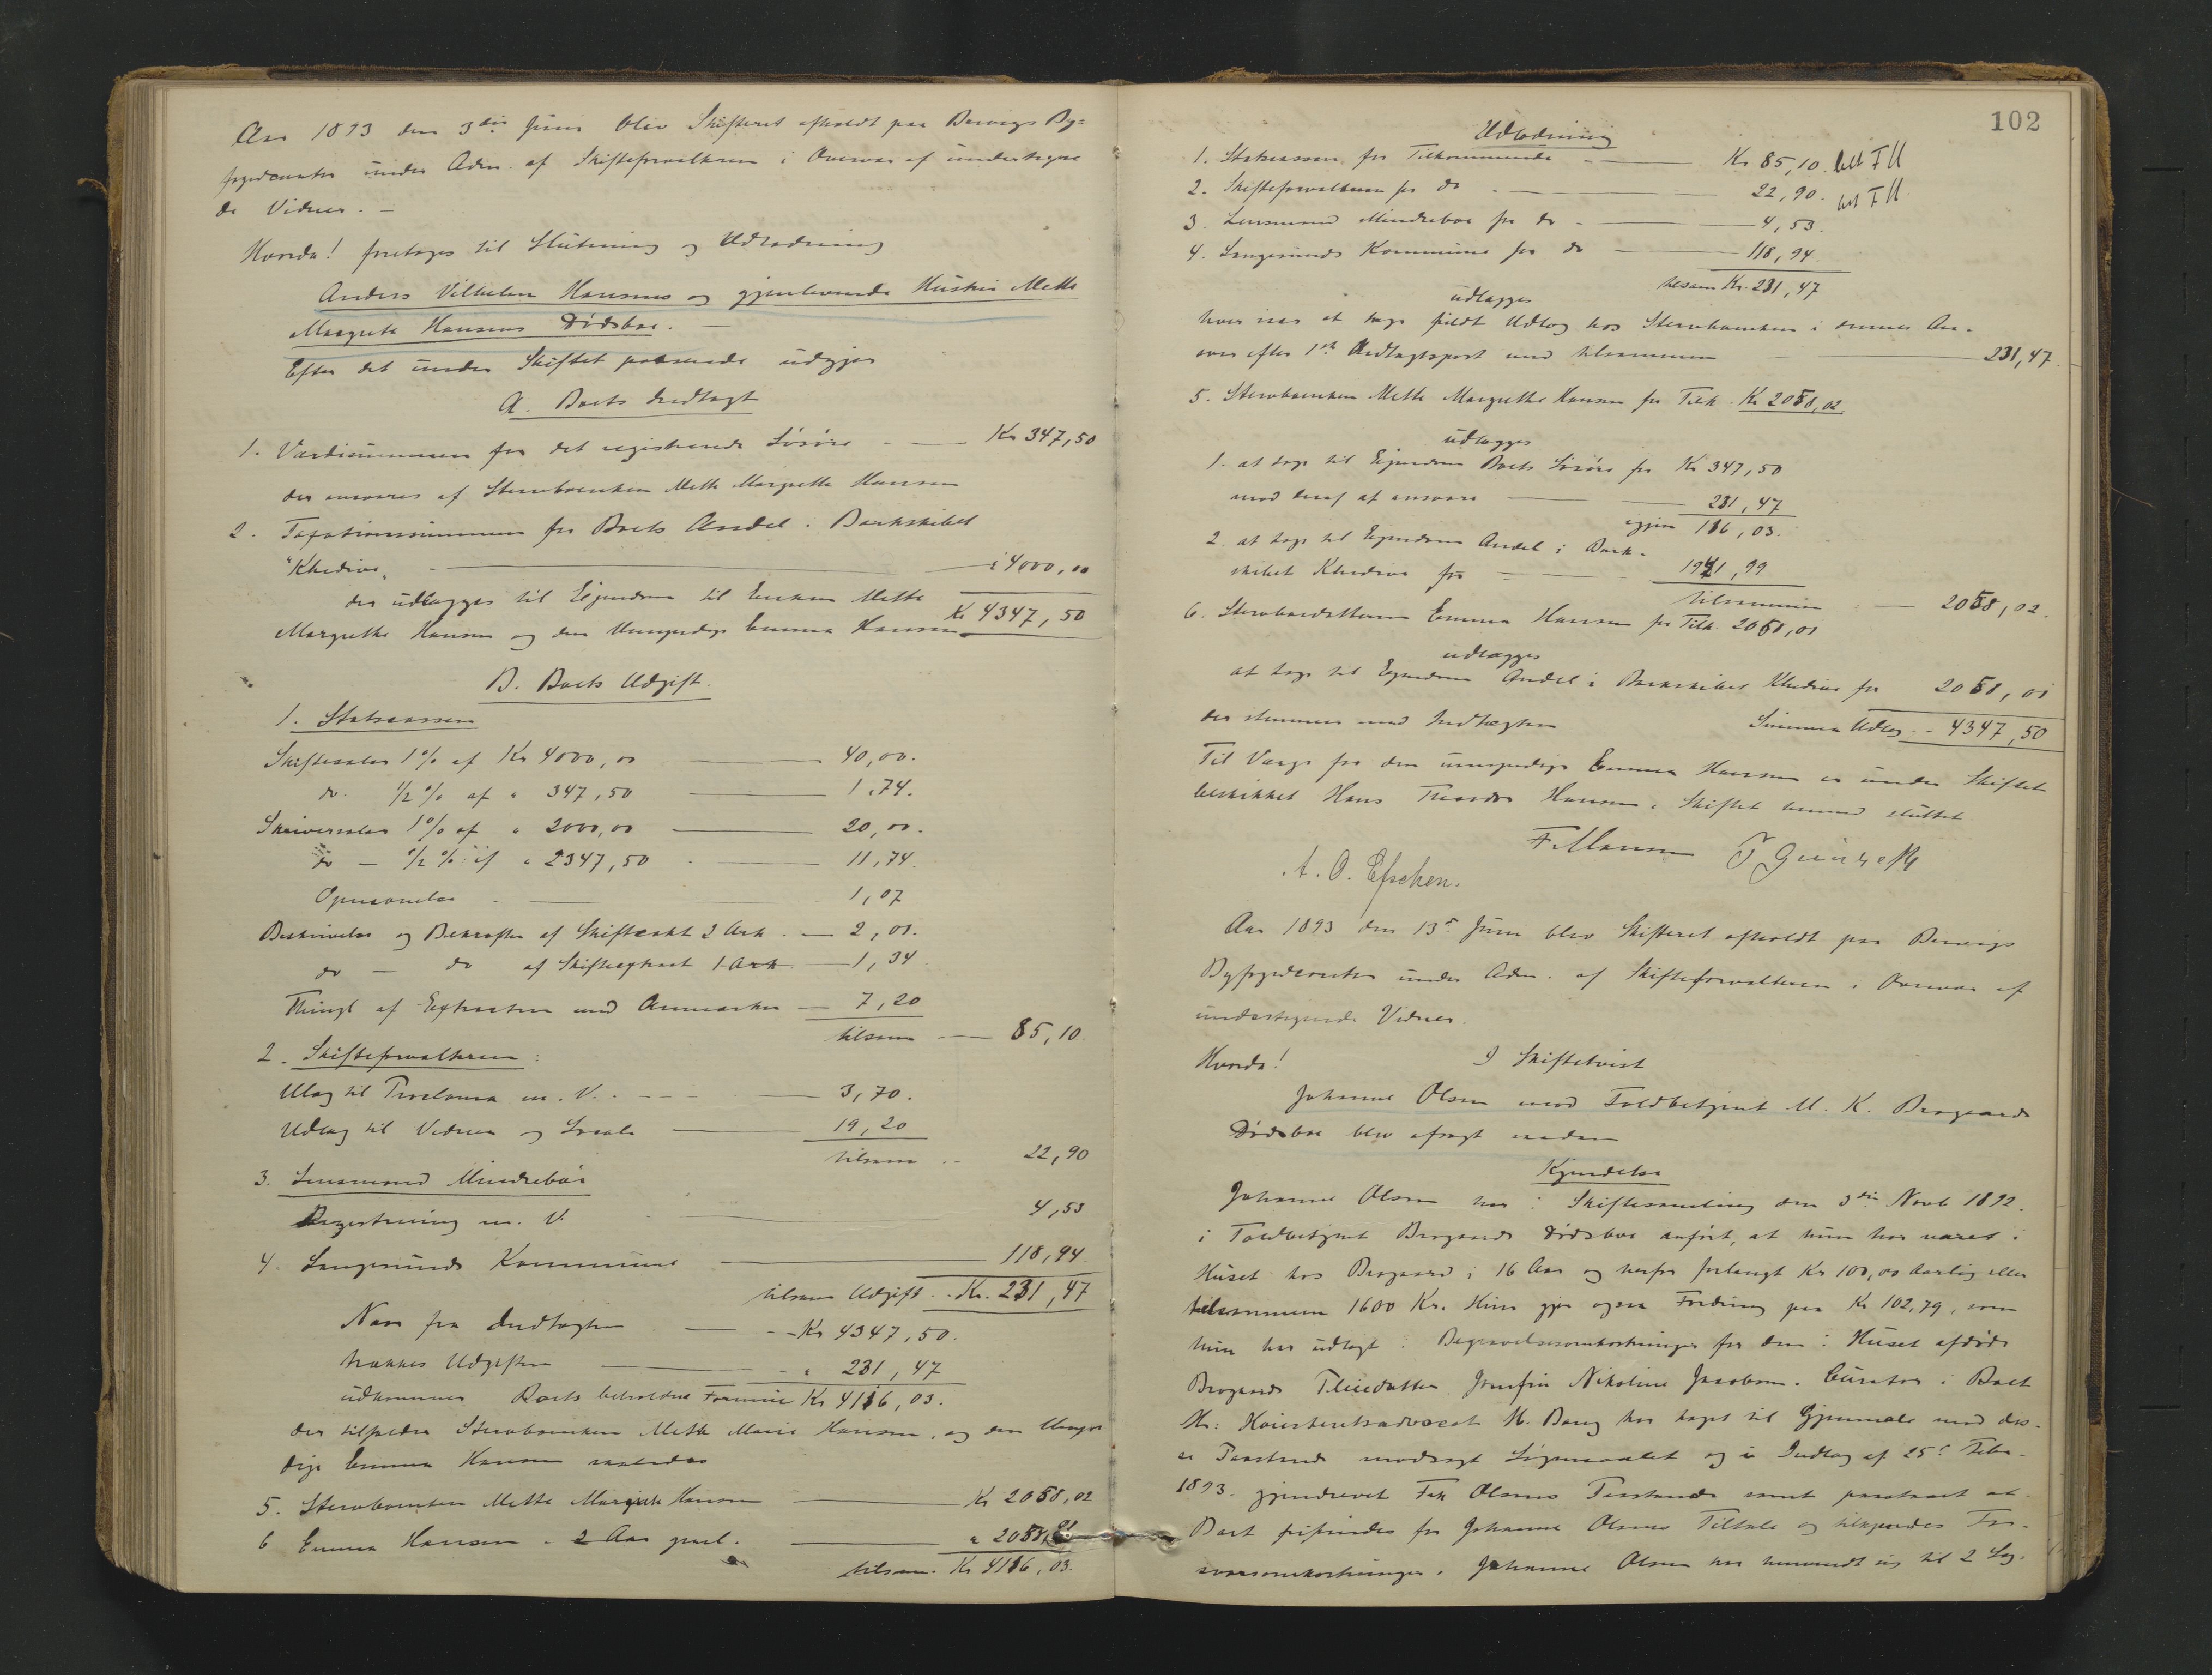 Aar 1893 den 3die Juni blev Skifteret afholdt paa Brevigs By-
fogedcontor under Adm. af Skifteforvalteren i Overvær af undertegne
de Vidner. –
Hvorda! foretoges til Slutning og Udlodning
Anders Vilhelm Hansens og gjenlevende Hustru Mette
Margrete Hansens Dødsbo. –
Efter det under Skiftet passerede udgjør
A. Boets Indtægt
1. Værdisummen for det registrerede Løsøre – Kr 347,50
der ansvares af Stervboenken Mette Margrethe Hansen
2. Taxationssummen for Boets Andel i Barkskibet
"Khedive" – " 4000,00
der udlægges til Eiendom til Enken Mette
Margrethe Hansen og den Umyndige Emma Hansen Kr 4347,50
B. Boets Udgift.
1. Statscassen
Skiftesalær 1% af Kr 4000,00 – 40,00.
do. ½% af " 347,50 – 1,74.
Skriversalær 1% af " 2000,00 – 20,00.
do – ½% af " 2347,50 – 11,74.
1,07
Beskrivelse og Bekræftn af Skifteakt 2 Ark. – 2,01.
do – do af Skifteextract 1 Ark – 1,34
Thingl af Extracten med Anmærkn – 7,20
tilsam – 85,10.
2. Skifteforvalteren:
Udlæg til Proclama m. V. – 3,70.
Udlæg til Vidner og Locale – 19,20
tilsam – 22,90
3. Lensmand Mindrebøe
Registrering m. V. 4,53
4. Langesunds Kommune – 118,94
tilsam Udgift – Kr. 231,47
Naar fra Indtægten – Kr 4347,50.
trækkes Udgiften – " 231,47
udkommer Boets beholdne Formue Kr 4116,03.
der tilfalder Stervboenken Mette Marie Hansen, og den Umyn
dige Emma Hansen saaledes
5. Stervboenken Mette Margrete Hansen – Kr 2058,02
6 Emma Hansen – 2 Aar gml. – " 2058,01
tilsam. Kr 4116,03.
102
Udlodning
1. Statscassen for Tilkommende – Kr 85,10. bet FM
2. Skifteforvalteren for do – 22,90. bet FM
3. Lensmand Mindreboe for do – 4,53.
4. Langesunds Kommune for do – 118,94
tilsam Kr. 231,47
udlægges
hver især at tage fuldt Udlæg hos Stervboenken i dennes An-
svar efter 1ste Indtægtspost med tilsammen – 231,47.
5. Stervboenken Mette Margrethe Hansen for Tilk. Kr 2058,02.
udlægges
1. at tage til Eiendom Boets Løsøre for Kr 347,50
mod deraf at ansvare – 231,47
igjen 116,03.
2. at tage til Eiendom Andel i Bark-
skibet Khedive for – 1941,99
tilsammen – 2058,02.
6. Stervboedatteren Emma Hansen for Tilk. 2058,01
udlægges
at tage til Eiendom Andel i Barkskibet Khedive for 2058,01
der stemmer med Indtægten Summa Udlæg – 4347,50
Til Værge for den umyndige Emma Hansen er under Skiftet
beskikket Hans Theodor Hansen. Skiftet hermed sluttet
F. Mansen
A. O. Efschen.
Aar 1893 den 13de Juni blev Skifteret afholdt paa Brevigs
Byfogedcontor under Adm. af Skifteforvalteren i Overvær af
undertegnede Vidner.
Hvorda! I Skiftetvist
Johanne Olsen mod Toldbetjent M. K. Brogaards
Dødsbo blev afsagt saadan
Kjendelse
Johanne Olsen har i Skiftesamling den 3die Novb 1892.
i Toldbetjent Brogaards Dødsbo anført, at hun har været i
Huset hos Brogaard i 16 Aar og herfor forlangt Kr 100,00 aarlig eller
tilsammen 1600 Kr. Hun gjør ogsaa Fordring paa Kr 102,79, som
hun har udlagt i Begravelsesomkostninger for den i Huset afdøde
Brogaards Pleiedatter Josefin Nikoline Jacobsen. Curator i Boet
Hr: Høiesteretsadvocat H. Bang har taget til Gjenmæle mod dis-
se Paastande modsagt Søgsmaalet og i Indlæg af 25de Febr.
1893. gjendrevet Frk Olsens Paastande samt paastaaet at
Boet frifindes for Johanne Olsens Tiltale og tilkjendes For-
svarsomkostninger. Johanne Olsen har henvendt sig til 2 Sag-